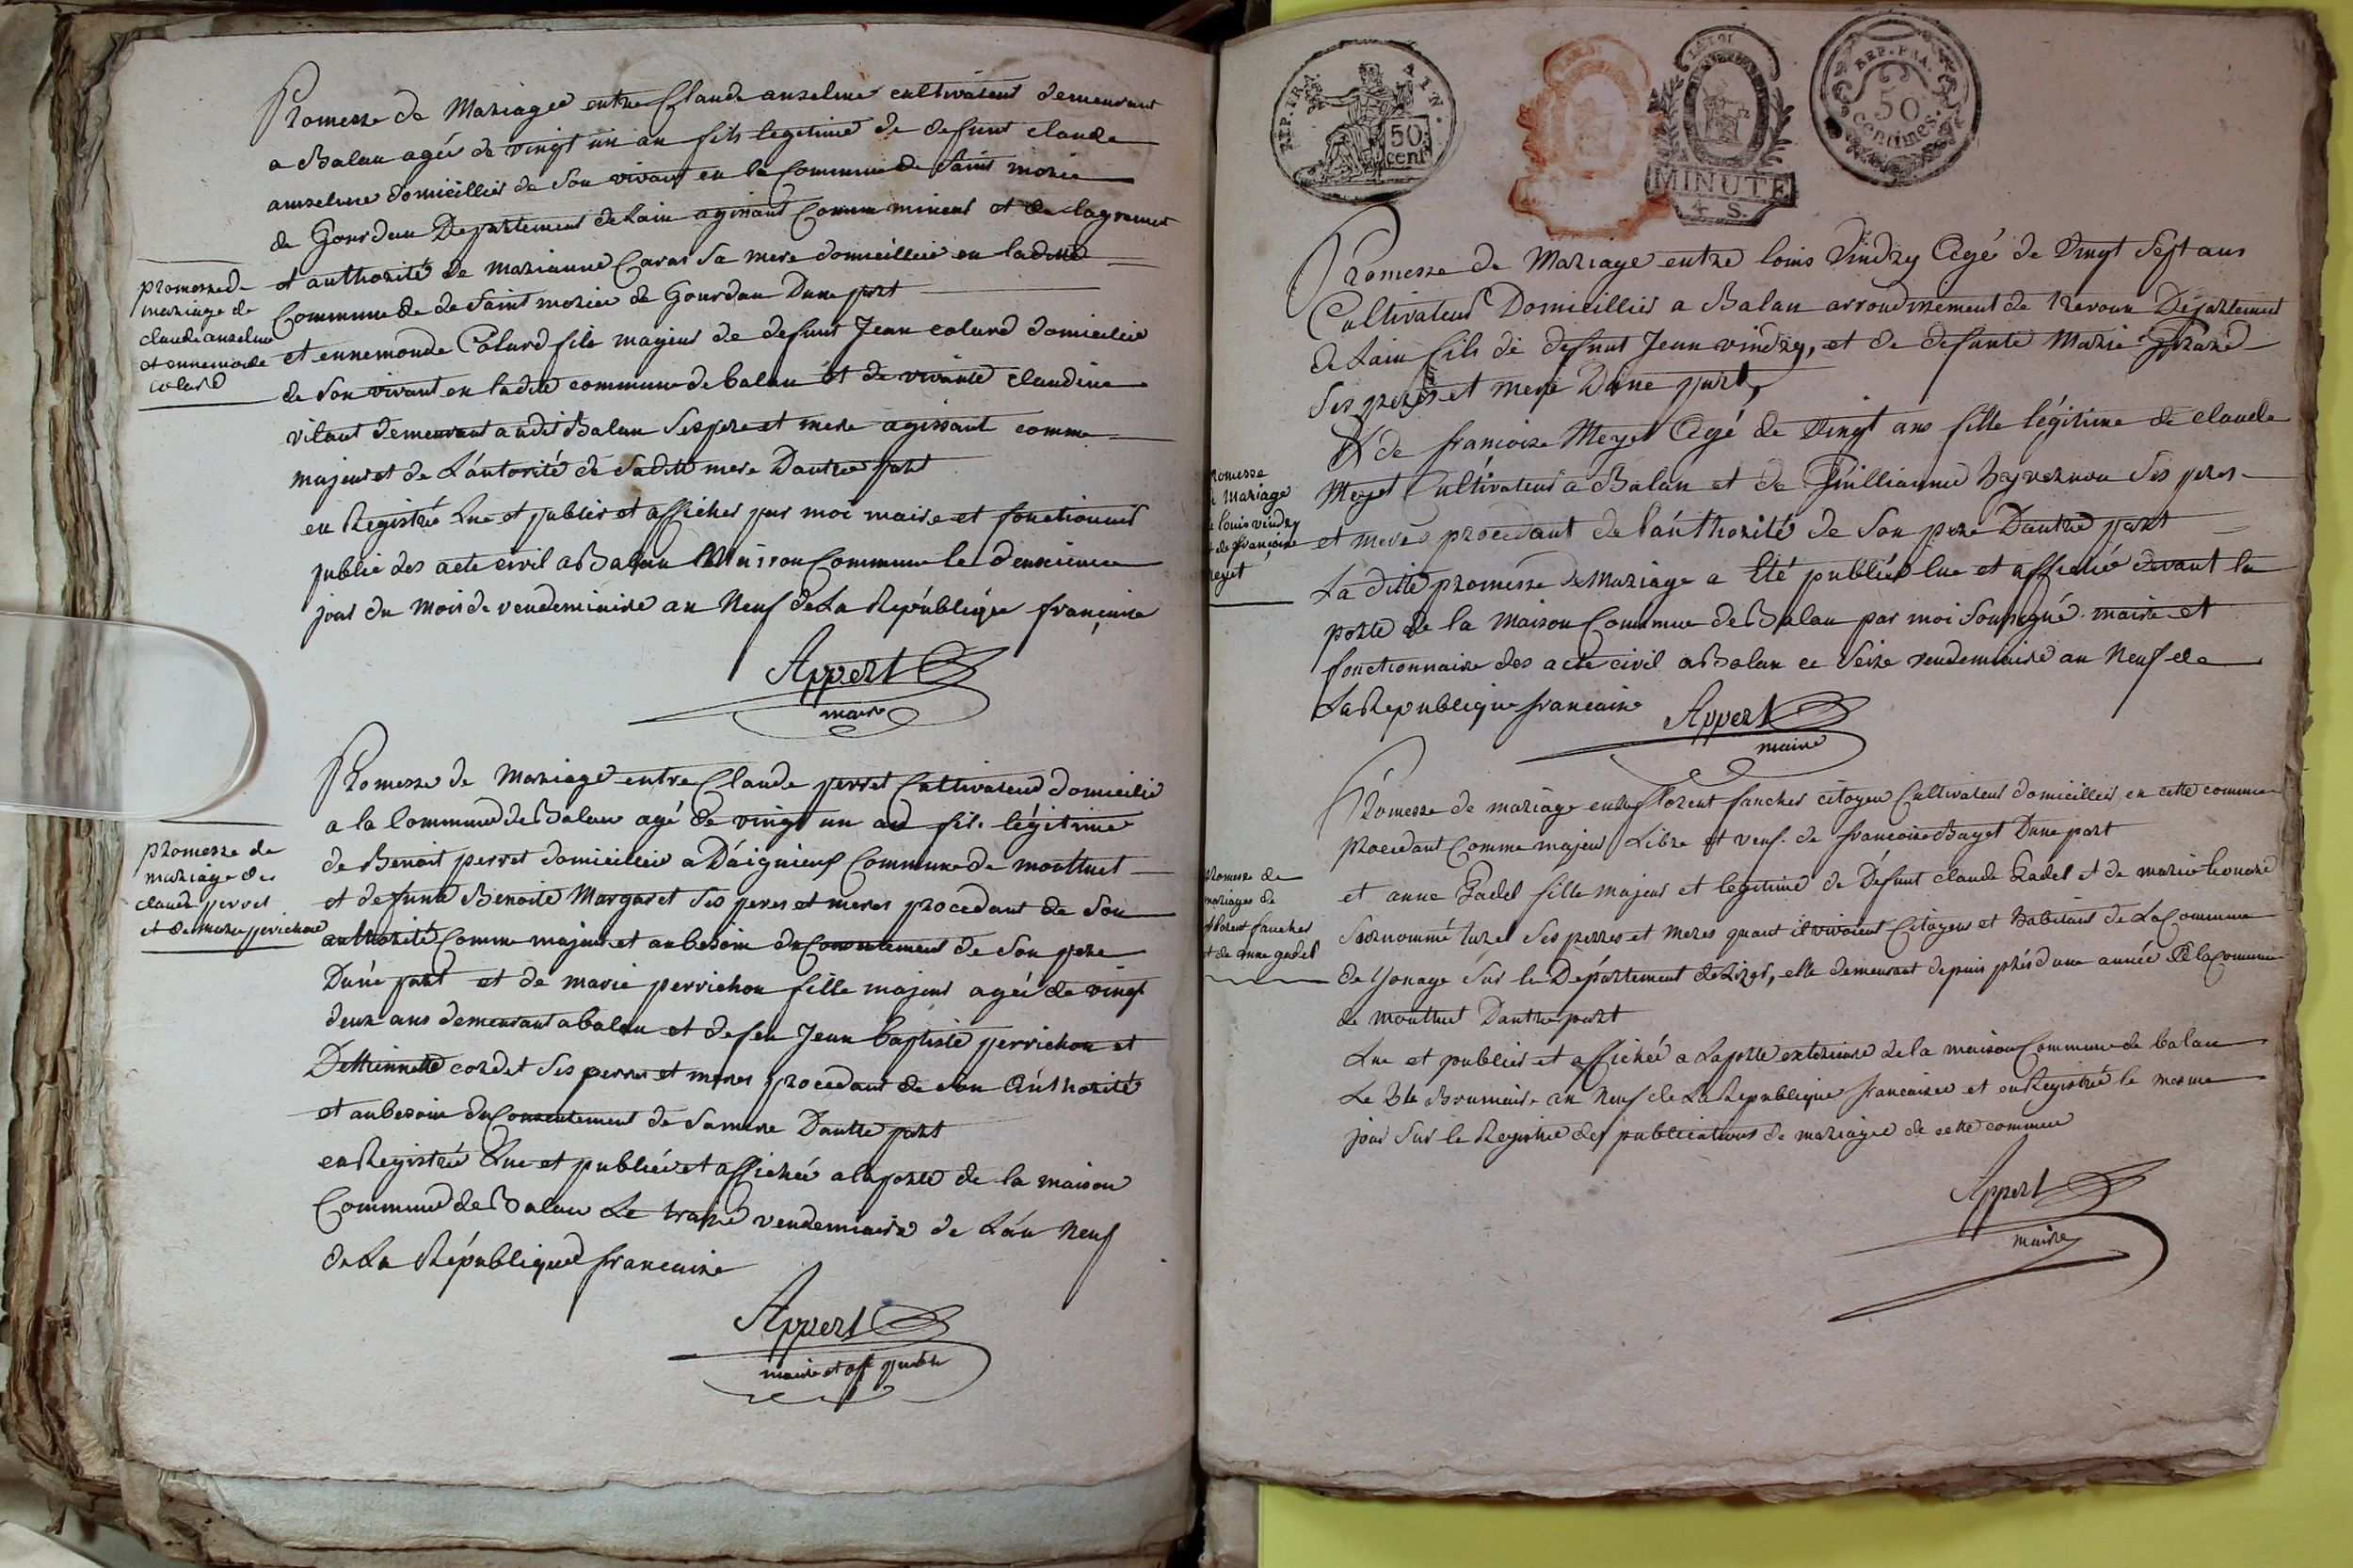 Promesse de Mariage entre Claude anselme cultivateur demeurant
a Balan agée de vingt un an fils legitime de defunt claude
anselme domicillié de son vivant en la Commune de Saint morice
de Gourdan Departement de Lain agissant Comme mineur et de lagrement
et authorité de Marianne Caras sa mere domicilliée en laditte
Commune de de Saint morice de Gourdan Dune part
et ennemonde Colard file majeur de defunt Jean colard domicilié
de son vivant en ladite commune de balan et de vivante claudine
vilaut demeurant audit Balan Ses pere et mere agissant comme
majeur et de Lautorité de Sadite mere Dautre part
en Registré Lue et publiés et affichés par moi maire et fonctionnes
public des acte civil a Balan Maison Commune le deuxieme
jour du mois de vendemiaire an Neuf de La République francaise
Appert
maire
promesse de
mariage de
claude anselme
et ennemonde
colard
Promesse de Mariage entre Claude perret Cultivateur domicilié
a la Commune de Balan agé de vingt un and fils légitime
de Benoit perret domicillié a Daignieus Commune de montluel
et defunte Benoite Margaret Ses peres et meres procedant de Son
authorité Comme majeur et au besoin du Consentement de Son pere
Dune part et de marie perrichon fille majeur agée de vingt
deux ans demeurant a balan et de feu Jean baptiste perrichon et
Dethiennette cordet Ses perres et meres procedant de Son Authorité
et au besoin du Consentement de Samere Dautre part
en Registrée Lue et publiée et affichée a la porte de la maison
Commune de Balan Le traize vendemiaire de Lan Neuf
de La République francaise
Appert
maire et off public
promesse de
mariage de
claude perret
et de marie perrichon
REP. FRA.
50
cent
MINUTE
4 S.
REP. FRA.
50
Centimes.
Promesse de Mariage entre louis Vindry Agé de Vingt Sept ans
Cultivateur Domicilliés a Balan arrondissement de trevoux Departement
de Lain fils de defunt Jean vindry, et de defunte Marie Girard
Ses peres et mere Dune part,
Et de francoise Meyet Agé de Vingt ans fille légitime de claude
Meyet Cultivateur a Balan et de Guilliaume Beyvernon Ses peres
et meres procedant de lauthorité de Son pere Dautre part
La dite promesse de Mariage a Eté publiée lue et affichée devant la
porte de la Maison Commune de Balan par moi Sousigné maire et
fonctionnaire des acte civil a Balan ce Seize vendemiaire an Neuf de
La Republique francaise
Appert
maire
romesse
mariage
louis vindry
de francoise
eyet
Promesse de mariage entre florent faucher citoyen Cultivateur domicilliés en cette commune
Procedant Comme majeur Libre et veuf de francoise Buget Dune part
et anne Gadel fille majeur et legitime de Défunt claude Gadel et de marie leonard
Sornommé Ses perres et meres quant il vivoient Citoyens et habitans de La Commune
de Jonage Sur le Département de Lizer, elle demeurant depuis prés dune année a la Commune
de montluel Dautre part
Lue et publiés et affichée a Laporte exterieure de la maison Commune de balan
Le Brumaire an Neuf de La Republique francaise et en Registrée le mesme
jour Sur le Registre des publications de mariage de cette commune
Appert
maire
promesse de
mariages de
florent faucher
et de anne gadel